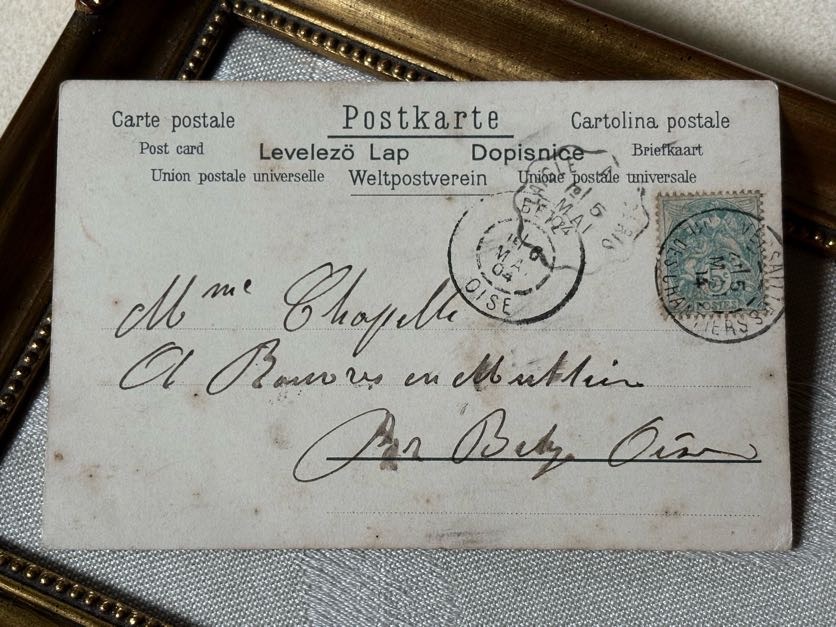 Carte postale Postkarte Cartolina postale
Post card Levelezö Lap Dopisnice Briefkaart
Union postale universelle Weltpostverein Unione postale universale
5
MAI
BETZ
6
MAI
04
OISE
5
Mme Chapelle
A en
Par Betz Oise